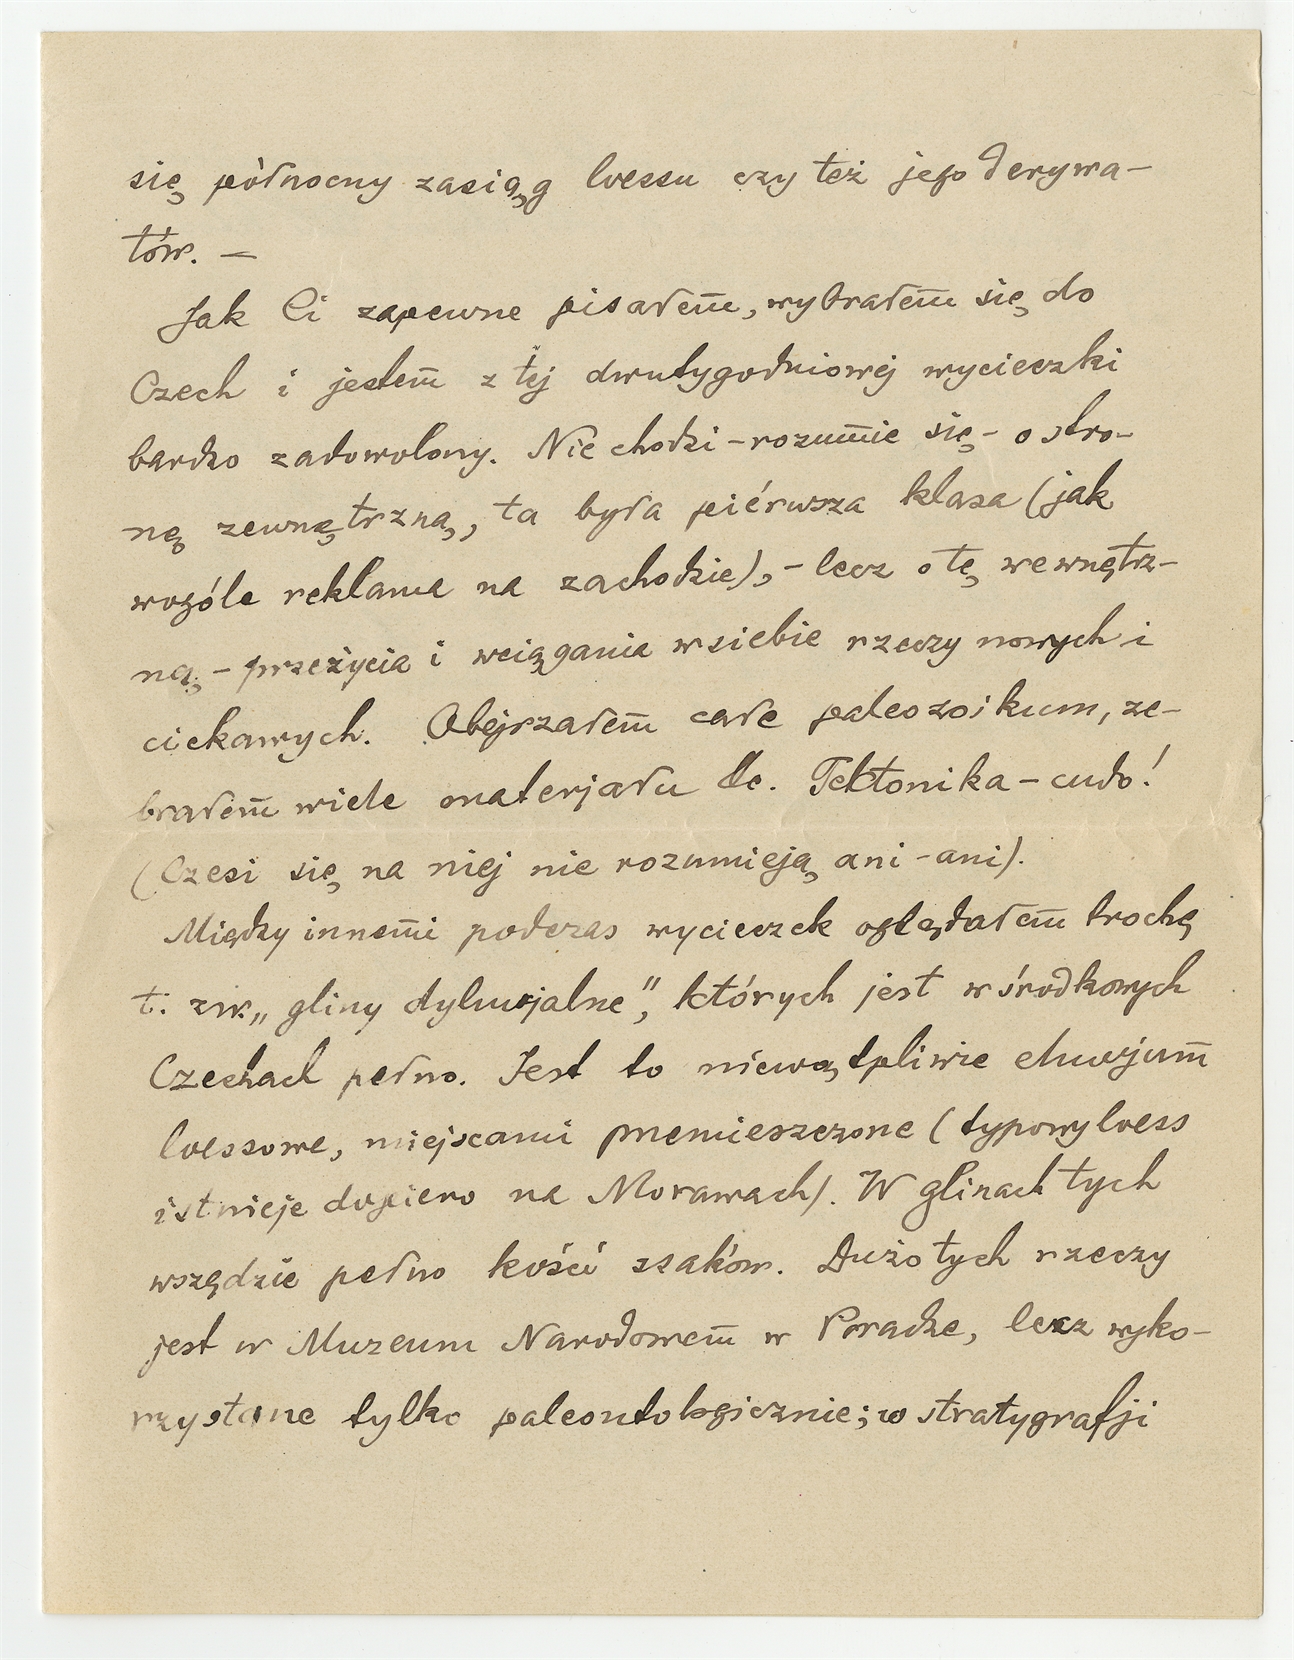 się północny zasiąg loessu czy też jego derywa-
tów. —
Jak Ci zapewne pisałem̅, wybrałem̅ się do
Czech i jestem̅ z tej dwutygodniowej wycieczki
bardzo zadowolony. Nie chodzi - rozum̅ie się - o stro-
nę zewnętrzną, ta była piérwsza klasa (jak
wogóle reklama na zachodzie), - lecz o tę wewnętrz-
ną, - przeżycia i wciągania w siebie rzeczy nowych i
ciekawych. Obejrzałem̅ całe paleozoikum, ze-
brałem̅ wiele materjału etc. Tektonika - cudo!
(Czesi się na niej nie rozumieją ani - ani).
Między innem̅i podczas wycieczek oglądałem̅ trochę
t. zw. „gliny dyluwjalne”, których jest w środkowych
Czechach pełno. Jest to niewątpliwie eluwjum̅
loessowe, miejscami przemieszczone (typowy loess
istnieje dopiero na Morawach). W glinach tych
wszędzie pełno kości ssaków. Dużo tych rzeczy
jest w Muzeum Narodowem̅ w Pradze, lecz wyko-
rzystane tylko paleontologicznie; w stratygrafji